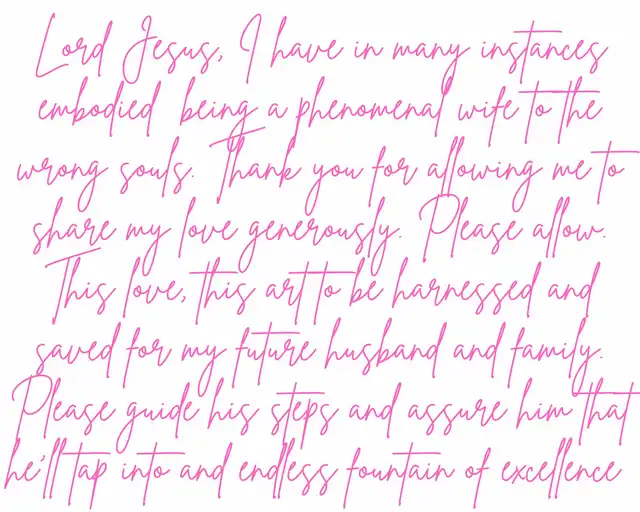 Lord Jesus, I have in many instances
embodied being a phenomenal wife to the
wrong souls. Thank you for allowing me to
share my love generously. Please allow.
This love, this art to be harnessed and
saved for my future husband and family.
Please guide his steps and assure him that
he'll tap into and endless fountain of excellence